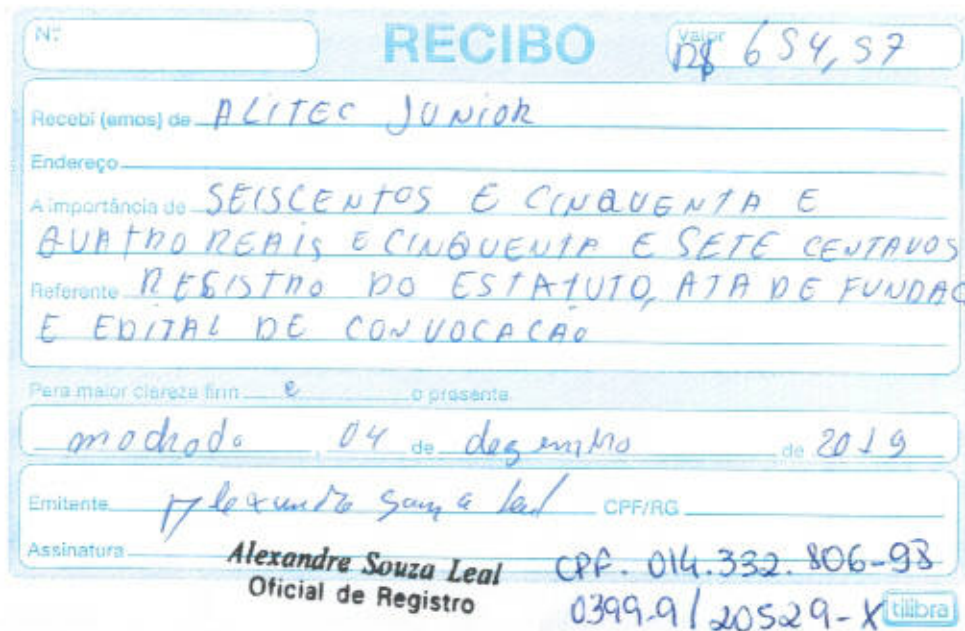 Nº RECIBO Valor R$ 654,57
Recebi (emos) de ALITEC JUNIOR
Endereço
A importância de SEISCENTOS E CINQUENTA E
QUATRO REAIS E CINQUENTA E SETE CENTAVOS
Referente REGISTRO DO ESTATUTO, ATA DE FUNDAC
E EDITAL DE CONVOCACAO
Para maior clareza firm e o presente
machado, 04 de dezembro de 2019
Emitente Alexandre Souza Leal CPF/RG
Assinatura
Alexandre Souza Leal CPF. 014.332.806-98
Oficial de Registro 0399-9/20529-X tilibra